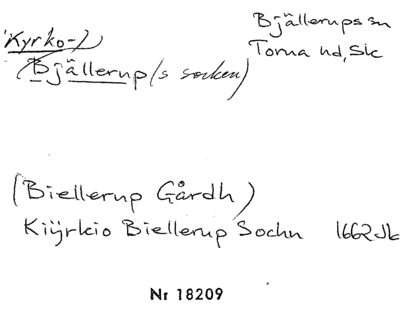 Bjällerups sn
Torna hd, Sk
(Kyrko-)
(Bjällerup/s socken)
(Biellerup Gårdh)
Kiÿrkio Biellerup Sochn 1662 Jb
Nr 18209